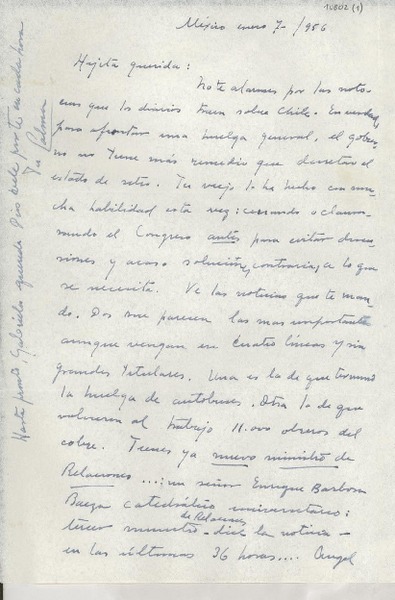 10802 (1)
México enero 7-/956
Hijita querida:
No te alarmes por las noti-
cias que los diarios traen sobre Chile. En verdad,
para afrontar una huelga general, el gobier
no no tiene más remedio que decretar el
estado de sitio. Tu viejo lo ha hecho con mu-
cha habilidad esta vez: cerrando o clausu-
rando el Congreso antes para evitar discu-
siones y acaso solución contraria, a lo que
se necesita. Ve las noticias que te man-
do. Dos me parecen las mas importantes
aunque vengan en cuatro líneas y sin
grandes titulares. Una es la de que terminó
la huelga de autobuses. Otra la de que
volvieron al trabajo 11.000 obreros del
cobre. Tienes ya nuevo ministro de
Relaciones ...: un señor Enrique Barbosa
Baeza catedrático universitario:
tercer ministro de Relaciones - dice la noticia -
en las últimas 36 horas.... Angel
Hasta pronto, Gabriela querida. Dios cuide por ti en cada hora
Tu Palma